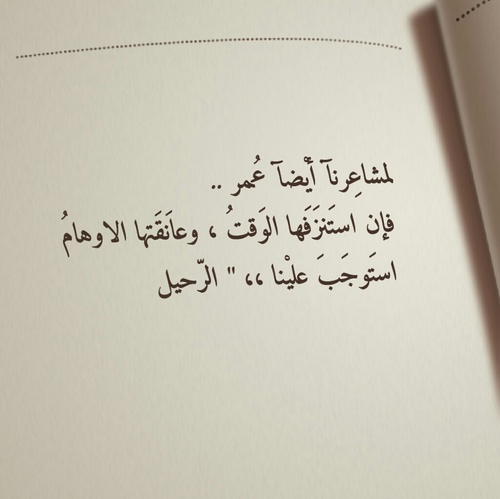 لمشاعِرنآ أيْضآ عُمر ..
فإن استَنزَفَها الوَقتُ ، وعانَقَتها الاوهامُ
استَوجَبَ عليْنا ،، " الرّحيل